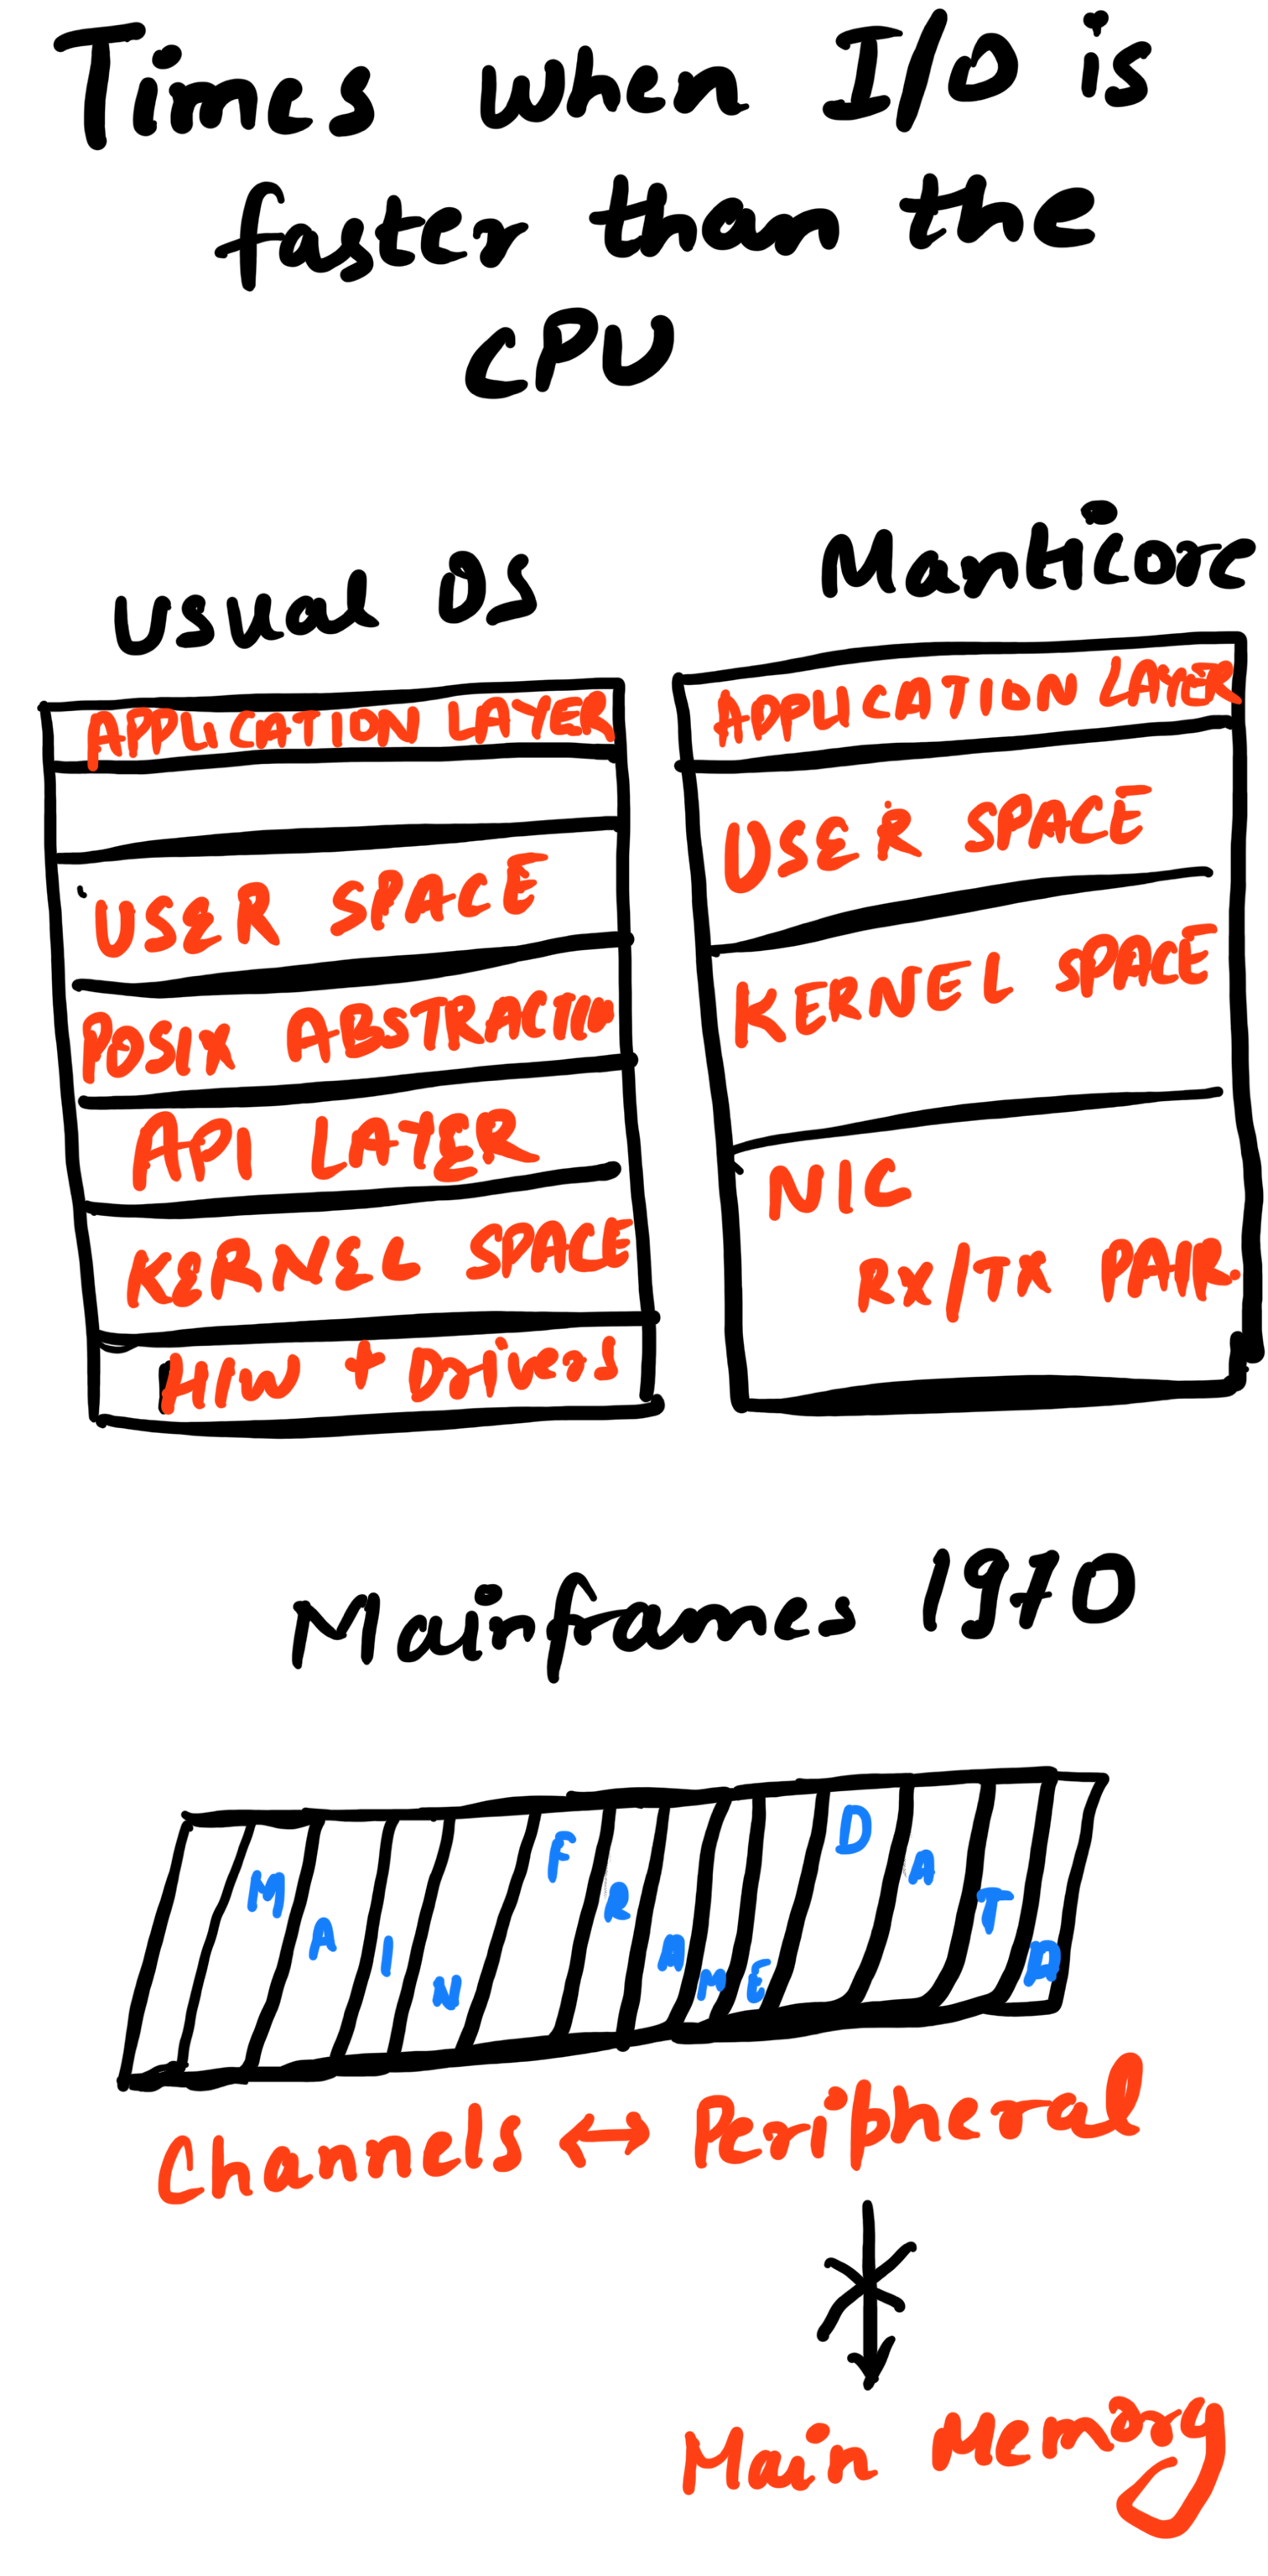 Times when I/O is
faster than the
CPU
Usual OS
APPLICATION LAYER
USER SPACE
POSIX ABSTRACTION
API LAYER
KERNEL SPACE
H/W + Drivers
Manticore
APPLICATION LAYER
USER SPACE
KERNEL SPACE
NIC
RX/TX PAIR.
Mainframes 1970
MAIN FRAME DATA
Channels ↔ Peripheral
Main Memory